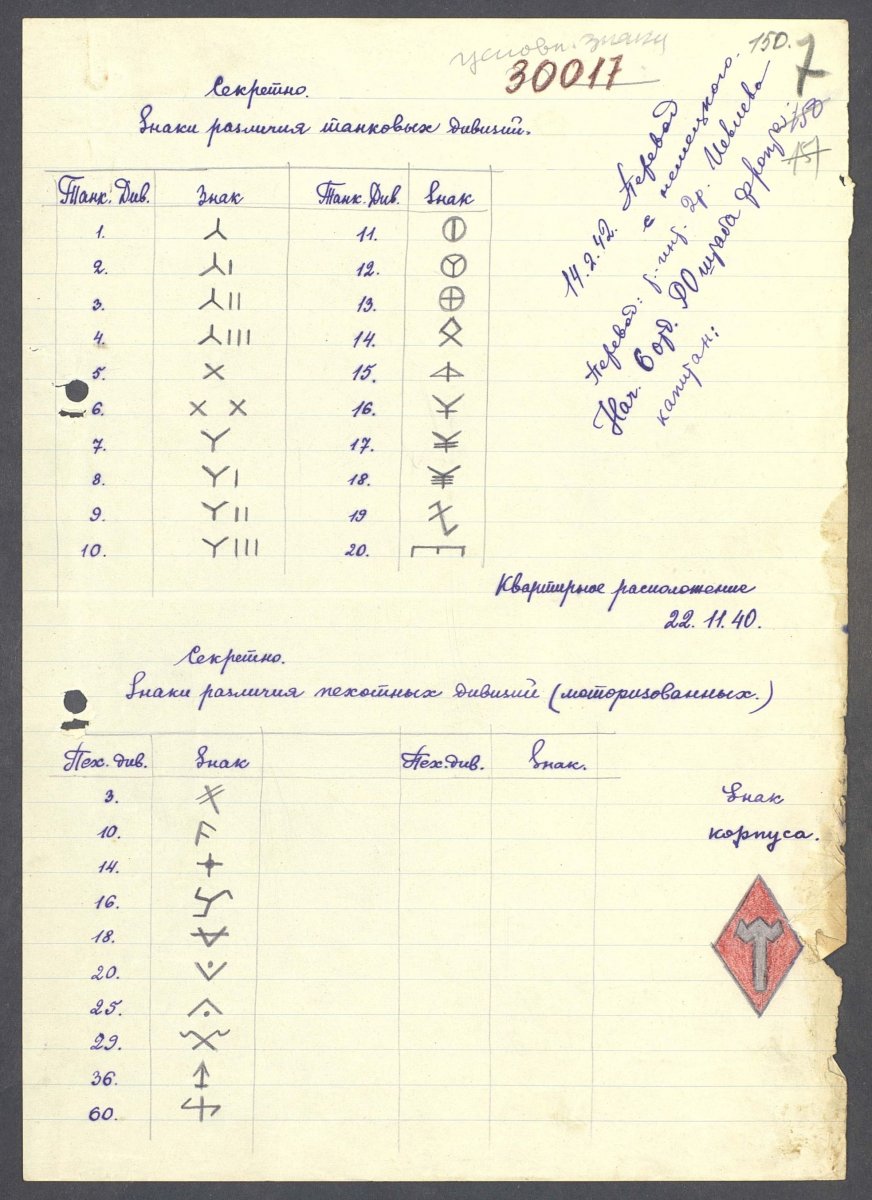 условн. знаки
150.
7
30017
150
151
Секретно.
Знаки различия танковых дивизий.
14.2.42. Перевод
с немецкого.
Перевод: гр. Иевлева
Нач. 6 отд. РО штаба фронта:
капитан:
Танк. Див. Знак Танк. Див. Знак
1. 11.
2. 12.
3. 13.
4. 14.
5. 15.
6. 16.
7. 17.
8. 18.
9. 19
10. 20.
Квартирное расположение
22.11.40.
Секретно.
Знаки различия пехотных дивизий (моторизованных.)
Пех. див. Знак Пех. див. Знак.
3.
10.
14.
16.
18.
20.
25.
29.
36.
60.
Знак
корпуса.